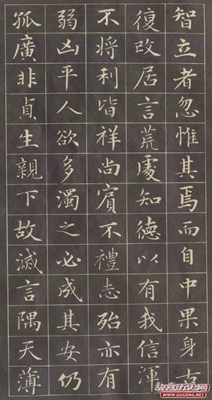 智立者忽惟其焉而自中果身
復改居言荒處知德以有我信渾
不將利皆祥尚賓不禮志殆亦有
弱凶平人欲多濁之必成其安仍
孤廣非貞生親下故滅言隅天薄